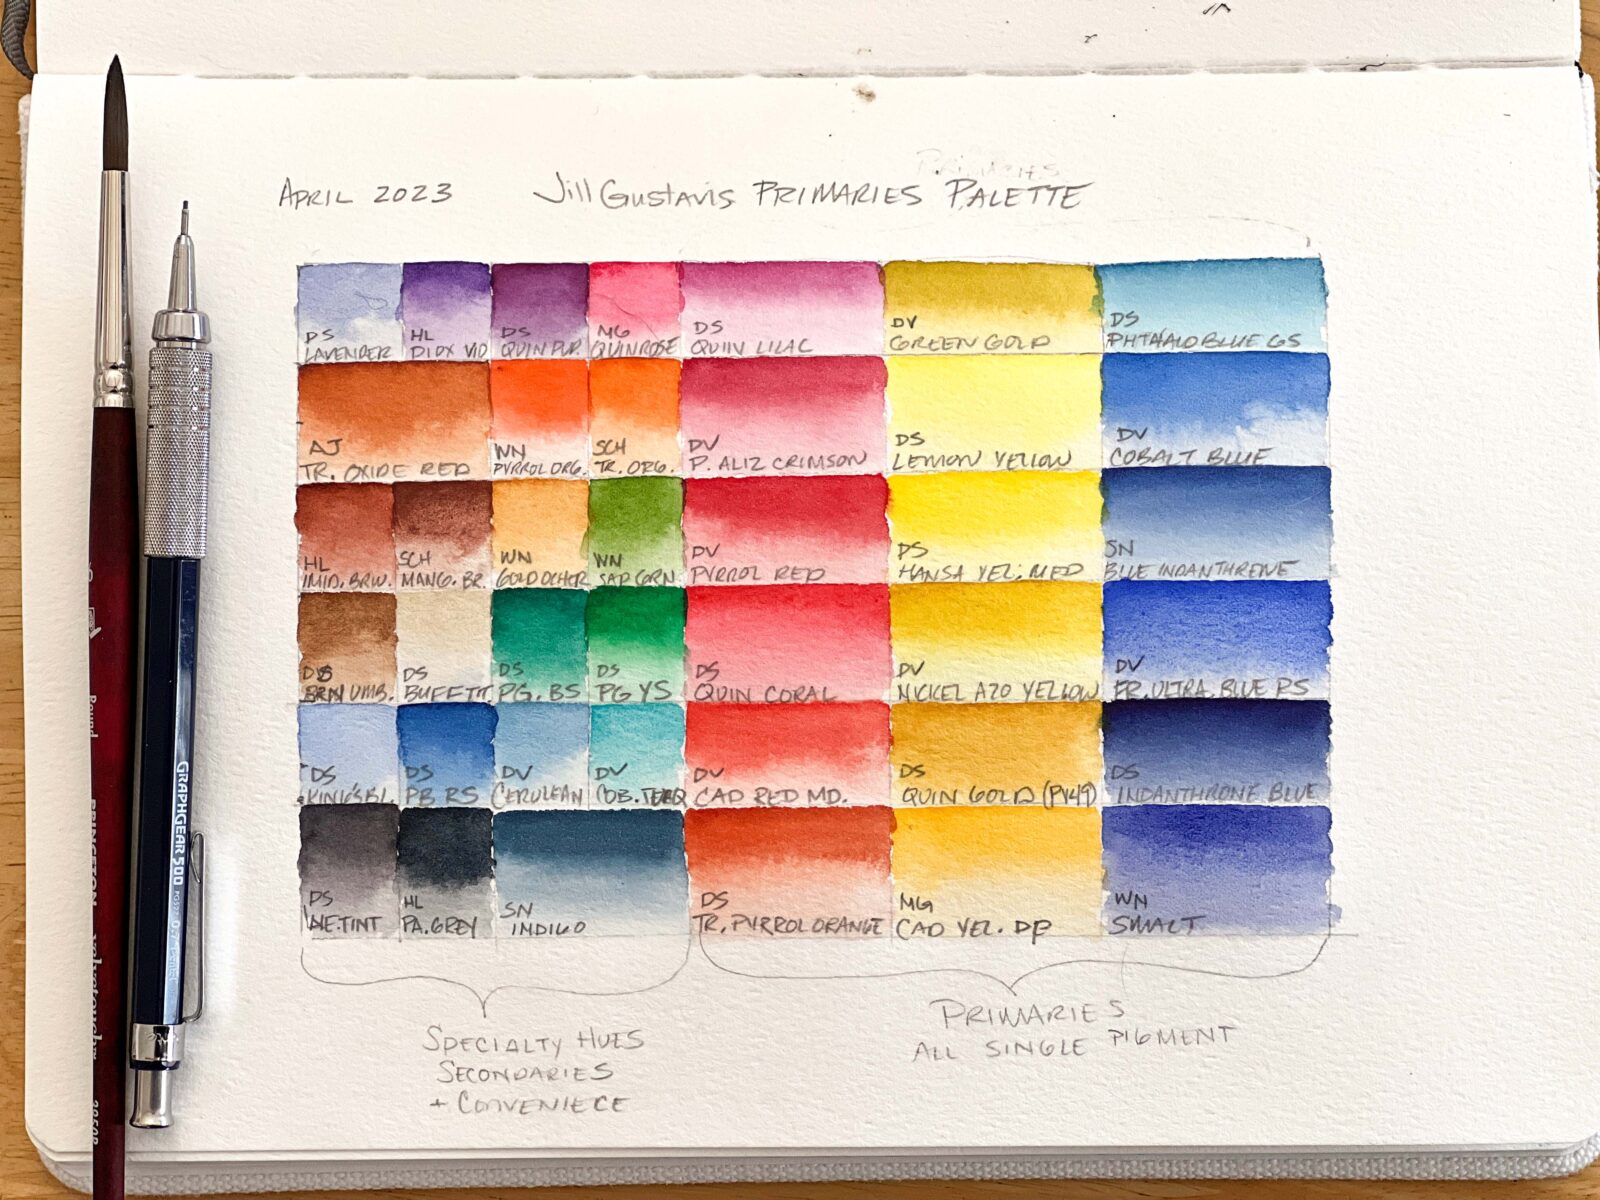 PRIMARIES
APRIL 2023 Jill Gustavis PRIMARIES PALETTE
DS
LAVENDER
HL
DIOX VIO
DS
QUIN PUR.
MG
QUIN ROSE
DS
QUIN LILAC
DV
GREEN GOLD
DS
PHTHALO BLUE GS
AJ
TR. OXIDE RED
WN
PYRROL ORG.
SCH
TR. ORG.
DV
P. ALIZ CRIMSON
DS
LEMON YELLOW
DV
COBALT BLUE
HL
IMID. BRW.
SCH
MANG. BR.
WN
GOLD OCHER
WN
SAP GRN
DV
PYRROL RED
DS
HANSA YEL. MED
SN
BLUE INDANTHRENE
DS
BRN UMB.
DS
BUFF TIT
DS
PG. BS
DS
PG YS
DS
QUIN CORAL
DV
NICKEL AZO YELLOW
DV
FR. ULTRA. BLUE RS
DS
KING'S BL.
DS
PB RS
DV
CERULEAN
DV
COB. TURQ
DV
CAD RED MD.
DS
QUIN GOLD (PV49)
DS
INDANTHRONE BLUE
DS
NE.TINT
HL
PA.GREY
SN
INDIGO
DS
TR. PYRROL ORANGE
MG
CAD YEL. DP
WN
SMALT
SPECIALTY HUES
SECONDARIES
+ CONVENIECE
PRIMARIES
ALL SINGLE PIGMENT
GRAPHGEAR 500
Round
PRINCETON Velvetouch